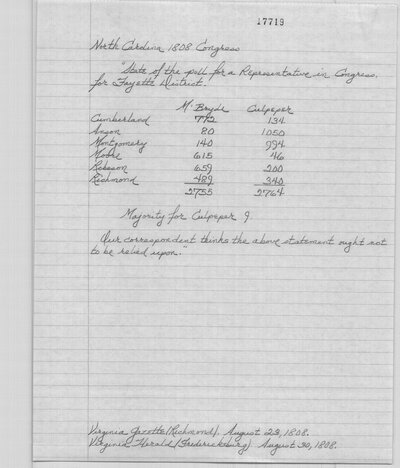 17719
North Carolina 1808 Congress
"State of the poll for a Representative in Congress
for Fayette District.
M. Bryde Culpeper
Cumberland 772 134
Anson 80 1050
Montgomery 140 994
Moore 615 46
Robeson 659 200
Richmond 489 340
2755 2764
Majority for Culpeper 9.
Our correspondent thinks the above statement ought not
to be relied upon."
Virginia Gazette (Richmond). August 23, 1808.
Virginia Herald (Fredericksburg) August 30, 1808.